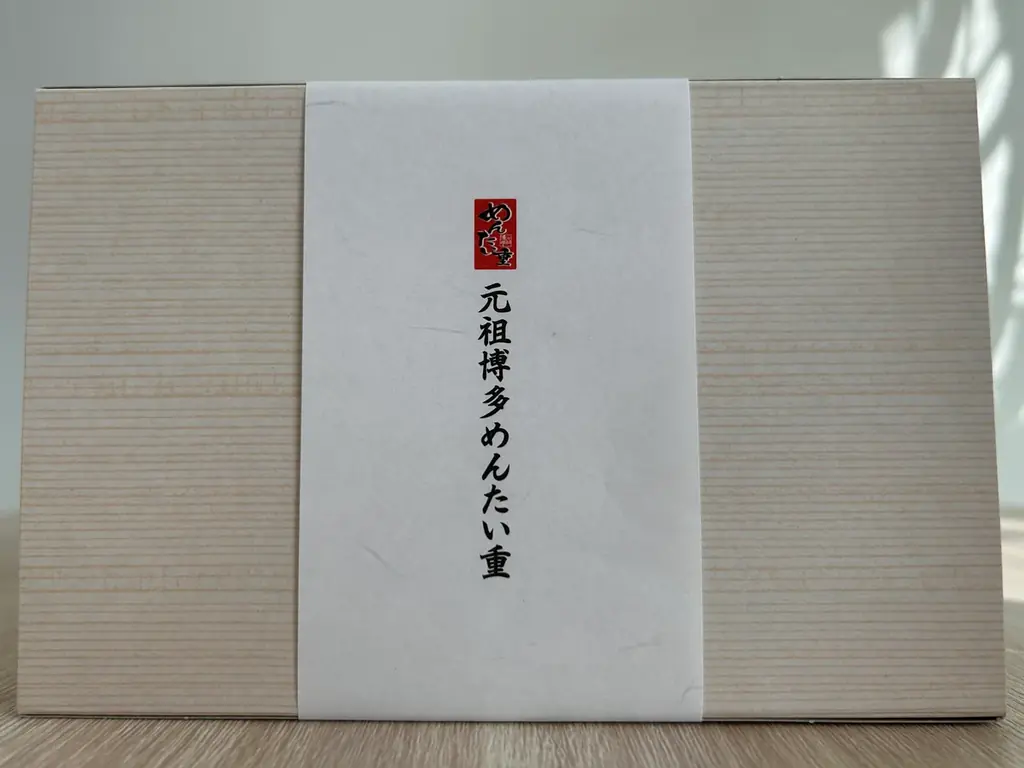 めんたい重
元祖博多めんたい重